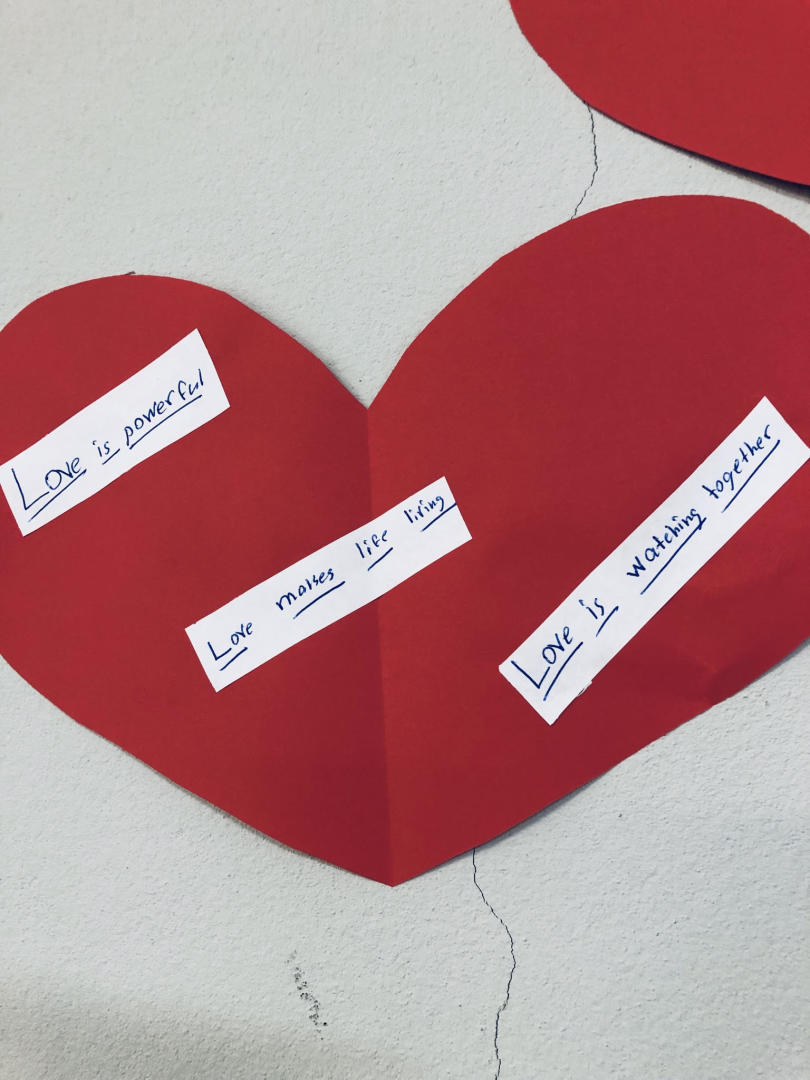 Love is powerful
Love makes life living
Love is watching together